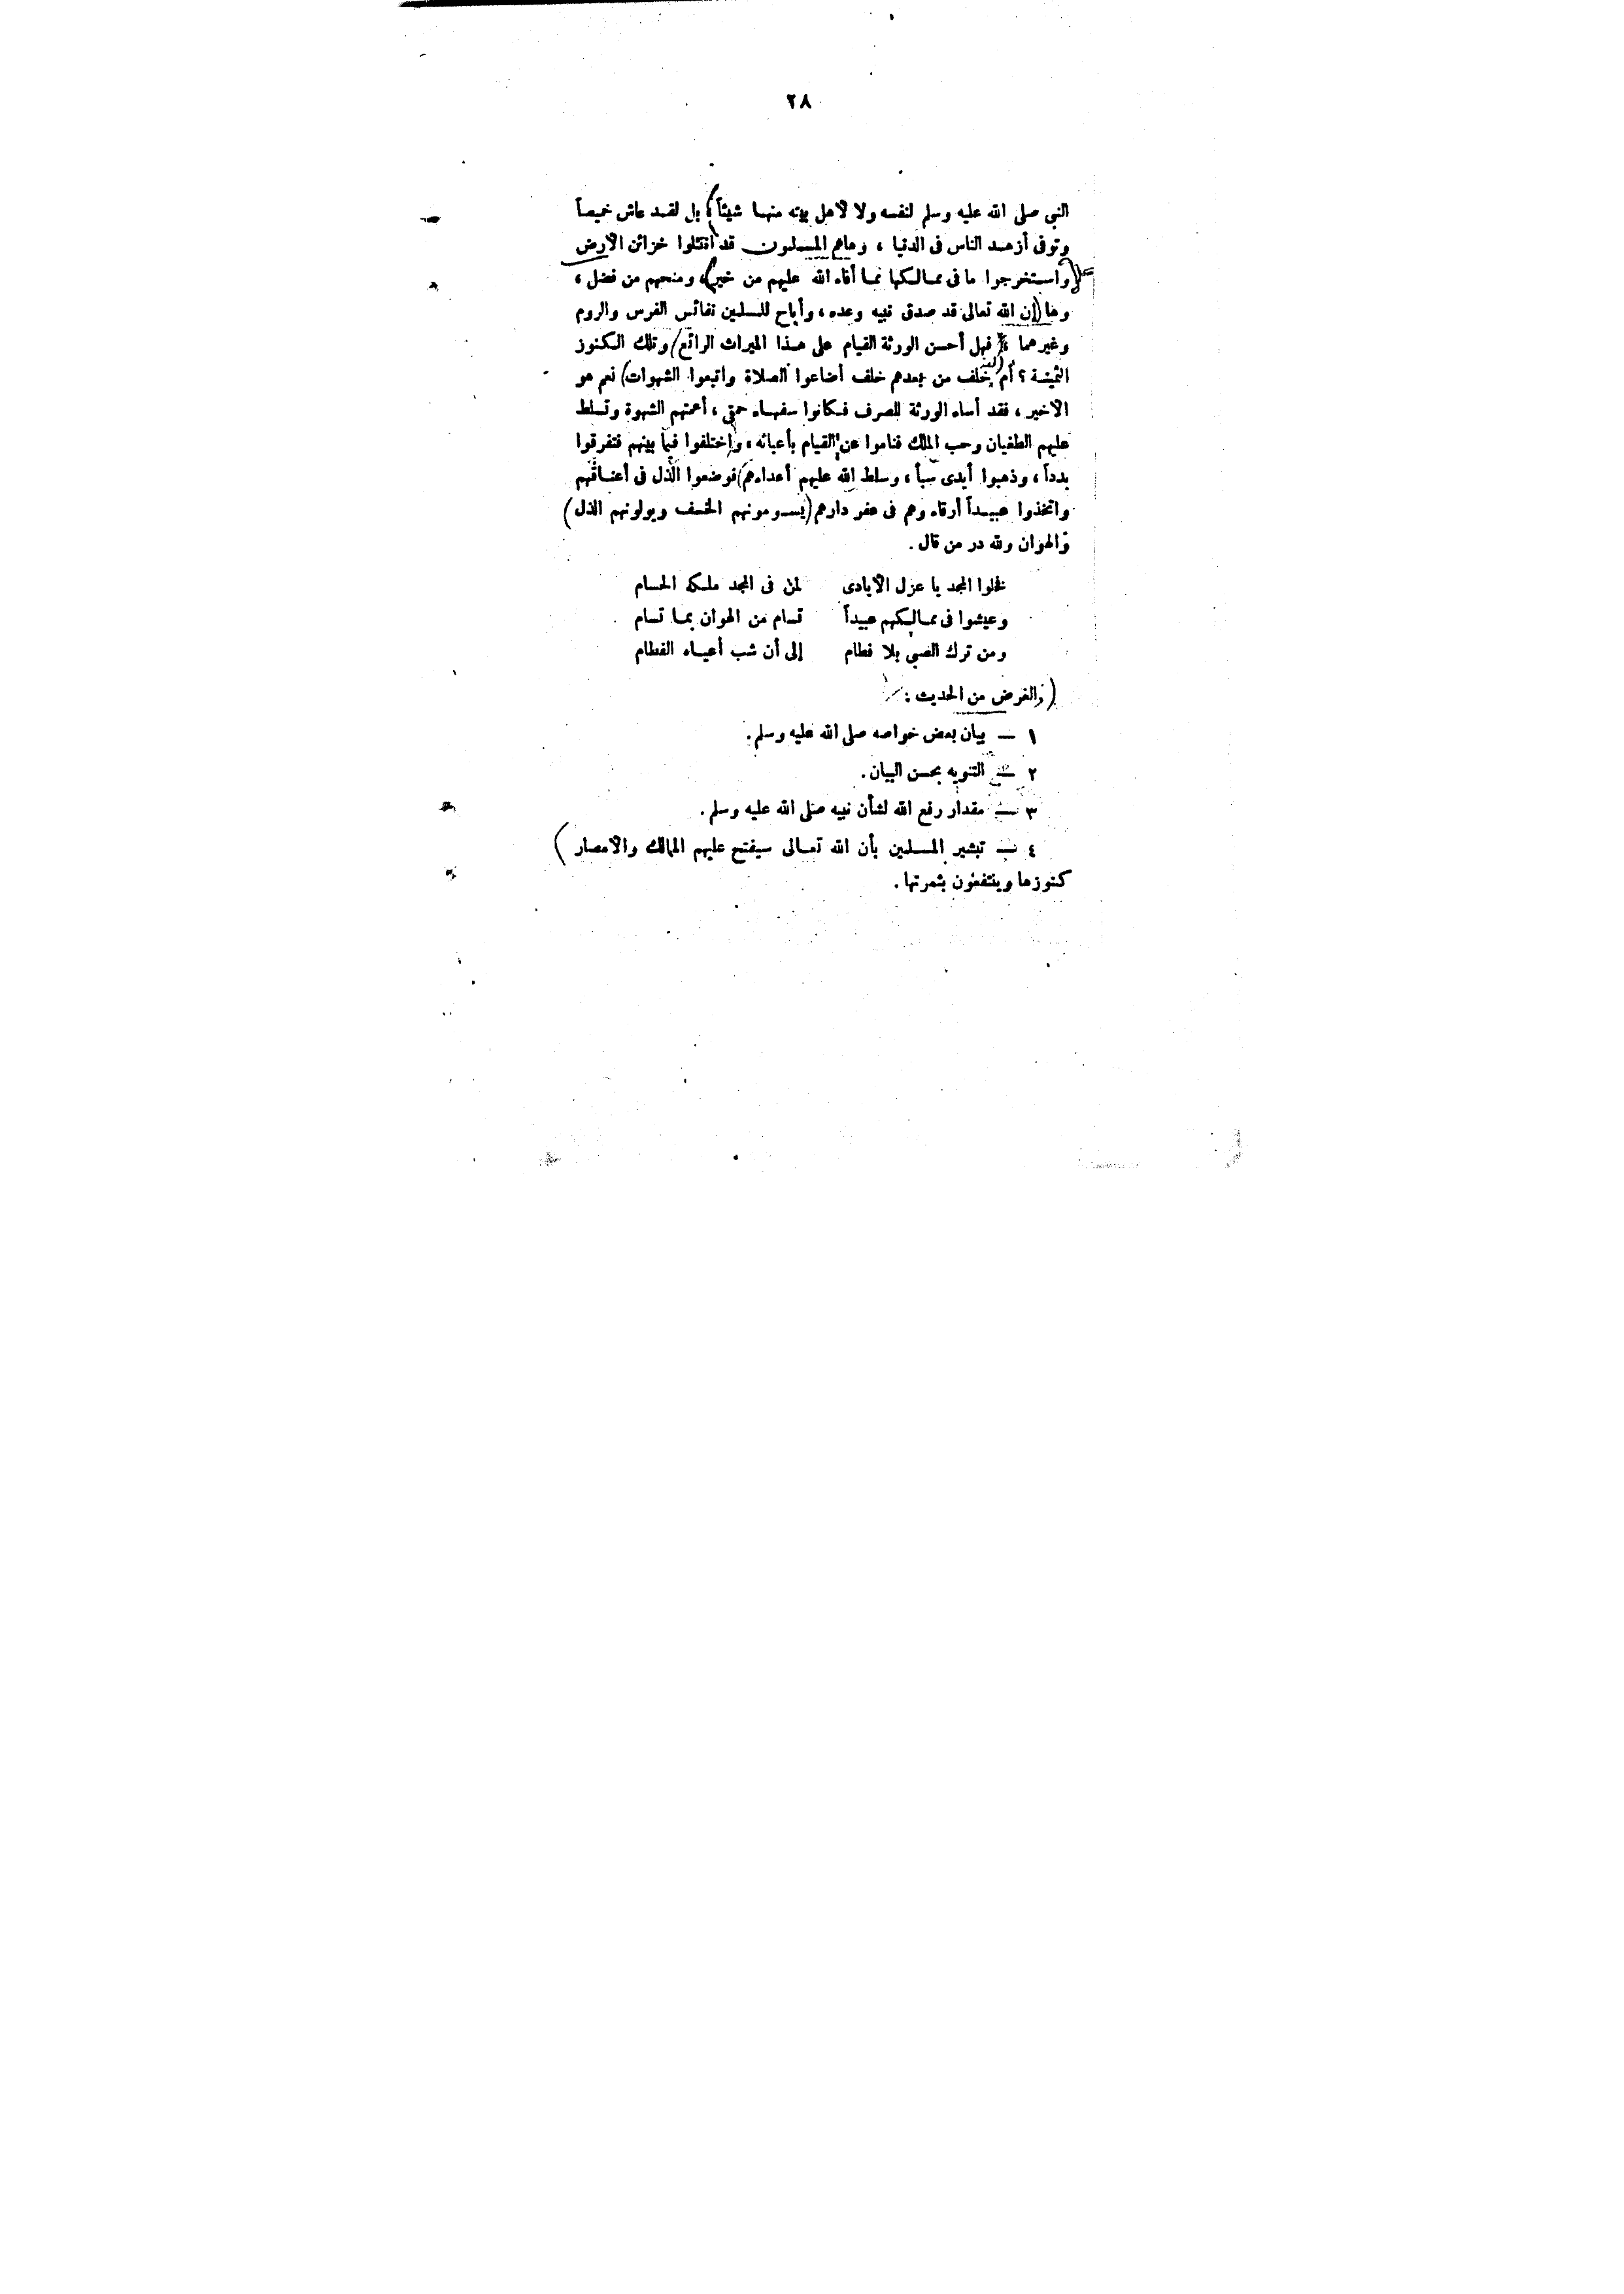 ٢٨
النبي صلى الله عليه وسلم لنفسه ولا لأهل بيته منها شيئاً ، بل لقد عاش خميصاً
وتوفى أزهد الناس فى الدنيا ، وهاهم المسلمون قد انتثلوا خزائن الأرض
واستخرجوا ما فى ممالكها مما أفاء الله عليهم من خير ، ومنحهم من فضل ،
وها إن الله تعالى قد صدق نبيه وعده ، وأباح للمسلمين نفائس الفرس والروم
وغيرهما فهل أحسن الورثة القيام على هذا الميراث الرائع وتلك الكنوز
الثمينة ؟ أم خلف من بعدهم خلف أضاعوا الصلاة واتبعوا الشهوات نعم هو
الأخير ، فقد أساء الورثة التصرف فكانوا سفهاء حمقى ، أعمتهم الشهوة وتسلط
عليهم الطغيان وحب الملك فناموا عن القيام بأعبائه ، واختلفوا فيما بينهم فتفرقوا
بدداً ، وذهبوا أيدى سبأ ، وسلط الله عليهم أعداءهم فوضعوا الذل فى أعناقهم
واتخذوا عبيداً أرقاء وهم فى عقر دارهم (يسومونهم الخسف ويولونهم الذل)
والهوان ولله در من قال .
فخلوا المجد يا عزل الأيادى لمن فى المجد ملكه الحسام
وعيشوا فى ممالكهم عبيداً تسام من الهوان بما تسام
ومن ترك الصبي بلا فطام إلى أن شب أعياه الفطام
(والغرض من الحديث :
١ — بيان بعض خواصه صلى الله عليه وسلم .
٢ — التنويه بحسن البيان .
٣ — مقدار رفع الله لشأن نبيه صلى الله عليه وسلم .
٤ — تبشير المسلمين بأن الله تعالى سيفتح عليهم الممالك والأمصار )
كنوزها وينتفعون بثمرتها .